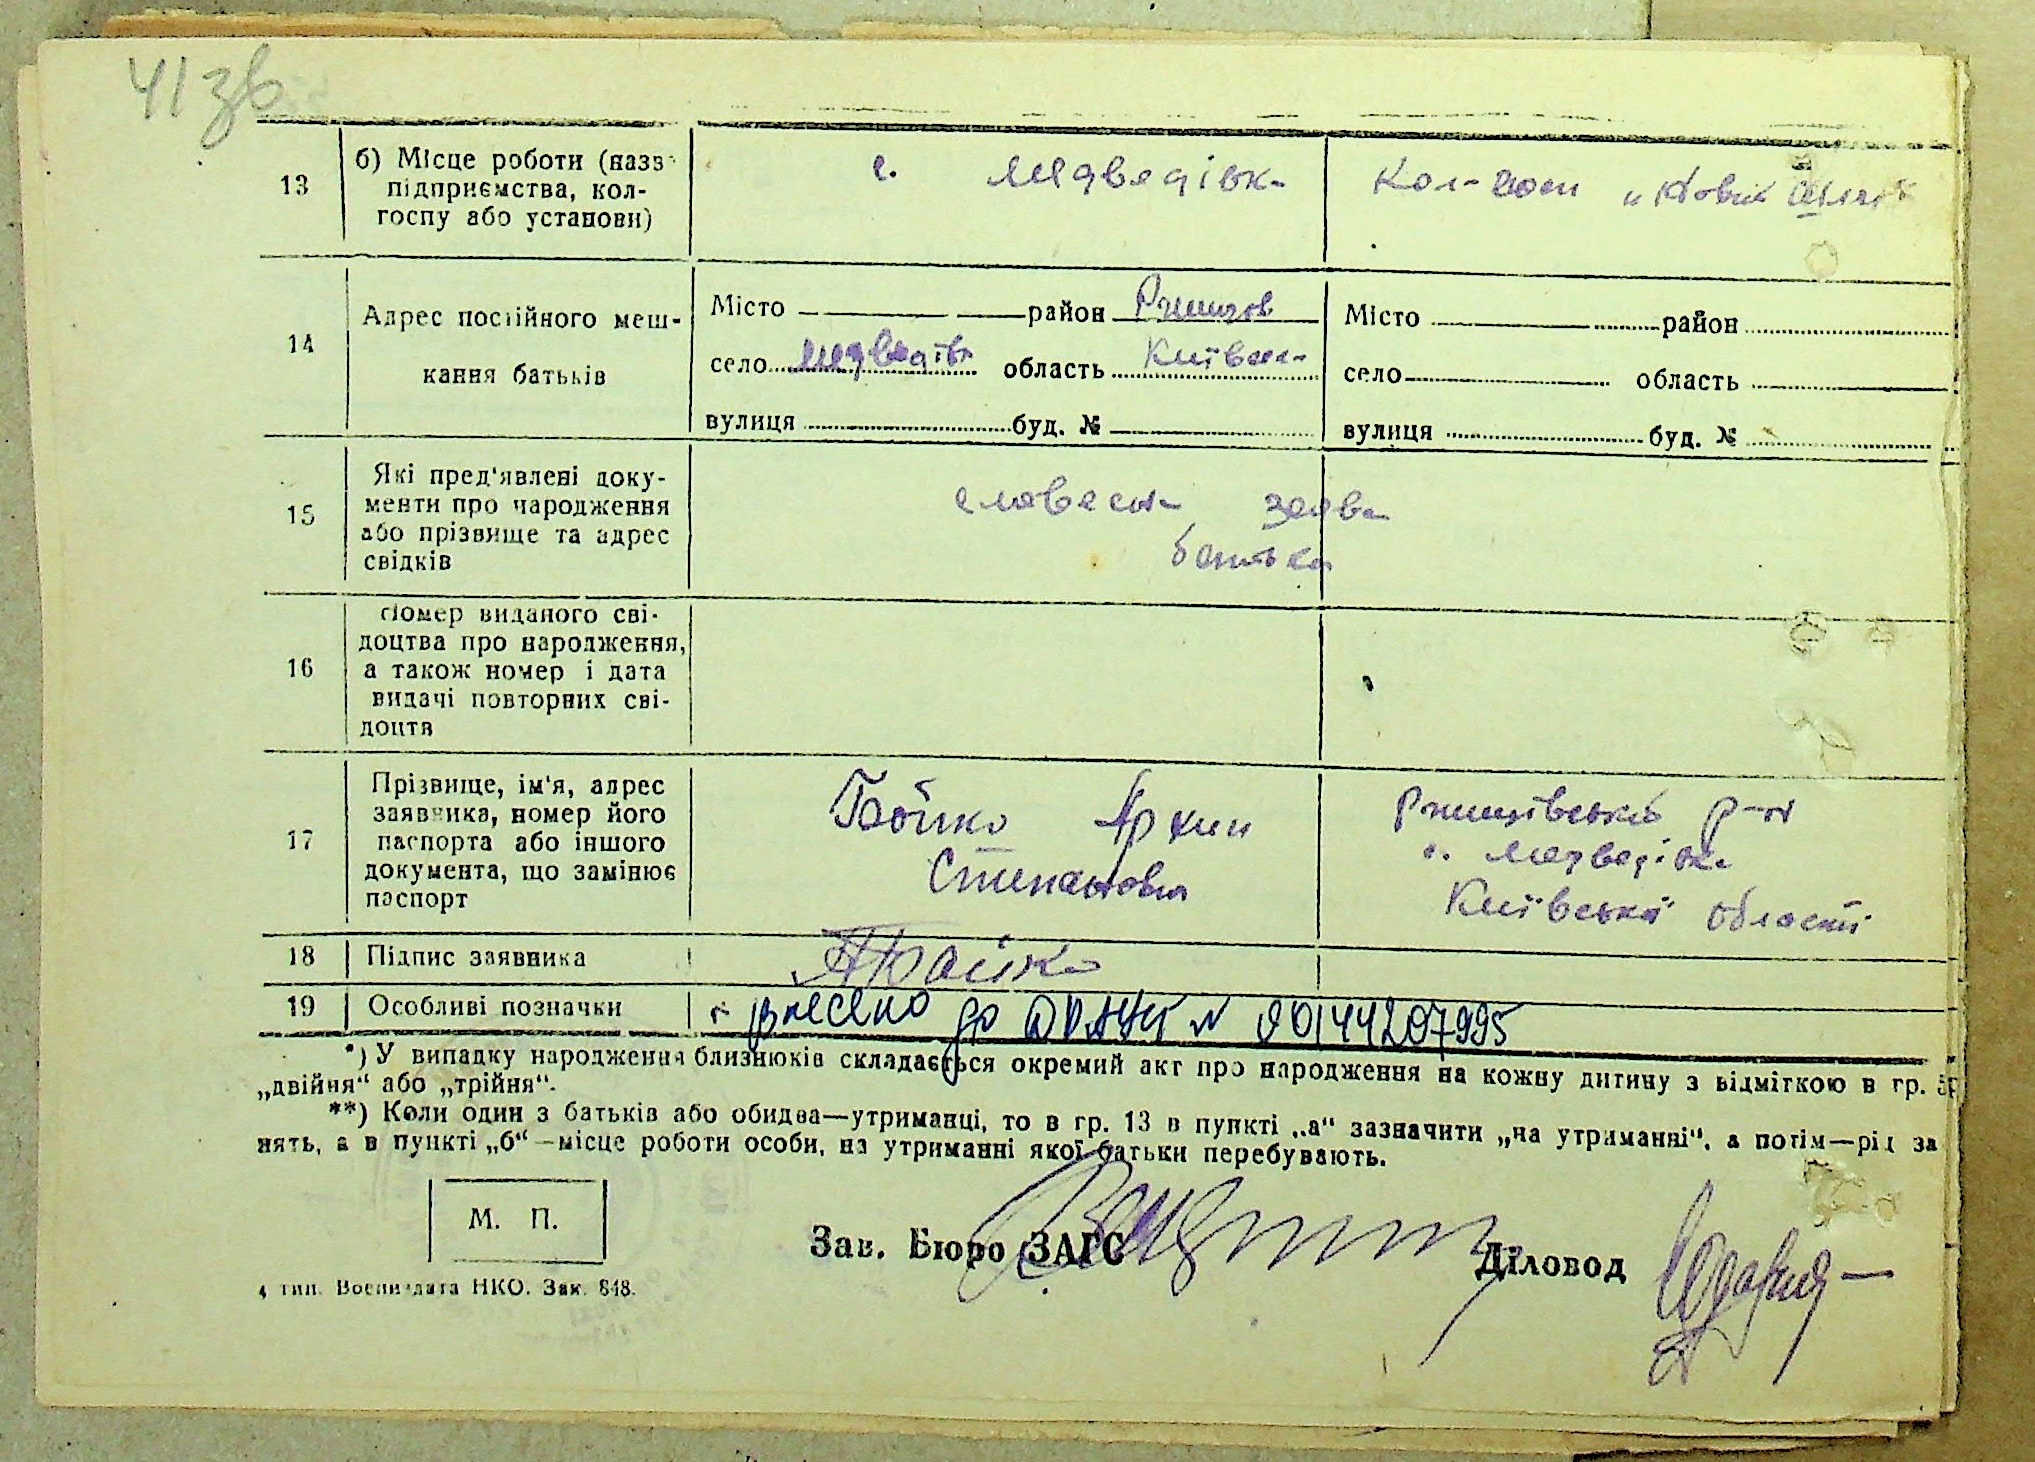 41 зв
13 б) Місце роботи (назв підприємства, кол-госпу або установи) с. Медведівк. Кол-госп „Новий Шлях
14 Адрес постійного меш-кання батьків
Місто район Ржищев Місто район
село Медведівк область Київськ село область
вулиця буд. № вулиця буд. №
15 Які пред'явлені доку-
менти про народження
або прізвище та адрес
свідків
словесна заява
батька
16 Номер виданого сві-
доцтва про народження,
а також номер і дата
видачі повторних сві-
доцтв
17 Прізвище, ім'я, адрес
заявника, номер його
паспорта або іншого
документа, що замінює
паспорт
Бойко
Степанович
Ржищівський р-н
с. Медведівка
Київської області
18 Підпис заявника АБойко
19 Особливі позначки Внесено до ДРАЦС № 00144207995
*) У випадку народження близнюків складається окремий акт про народження на кожну дитину з відміткою в гр.
„двійня“ або „трійня“.
**) Коли один з батьків або обидва—утриманці, то в гр. 13 в пункті „а“ зазначити „на утриманні“, а потім—рід за
нять, а в пункті „б“—місце роботи особи, на утриманні якої батьки перебувають.
М. П.
Зав. Бюро ЗАГС Діловод
4 тип. Воениздата НКО. Зак. 848.